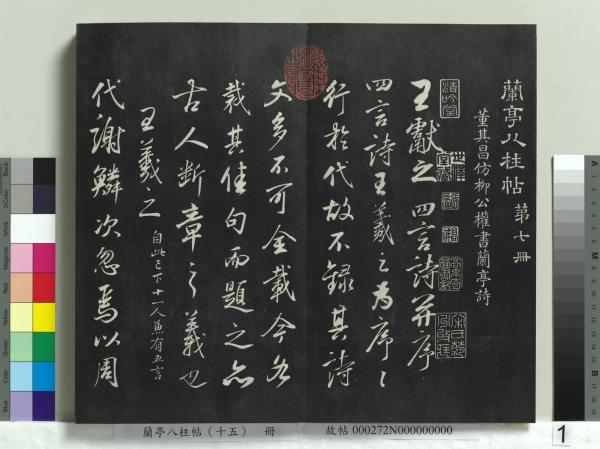 蘭亭八柱帖 第七冊
董其昌仿柳公權書蘭亭詩
王獻之四言詩并序
四言詩王羲之為序〻
行於代故不錄其詩
文多不可全載今各
裁其佳句而題之亦
古人斷章之義也
王羲之 自此已下十一人兼有五言
代謝鱗次忽焉以周
蘭亭八柱帖(十五) 冊
故帖 000272N000000000
1